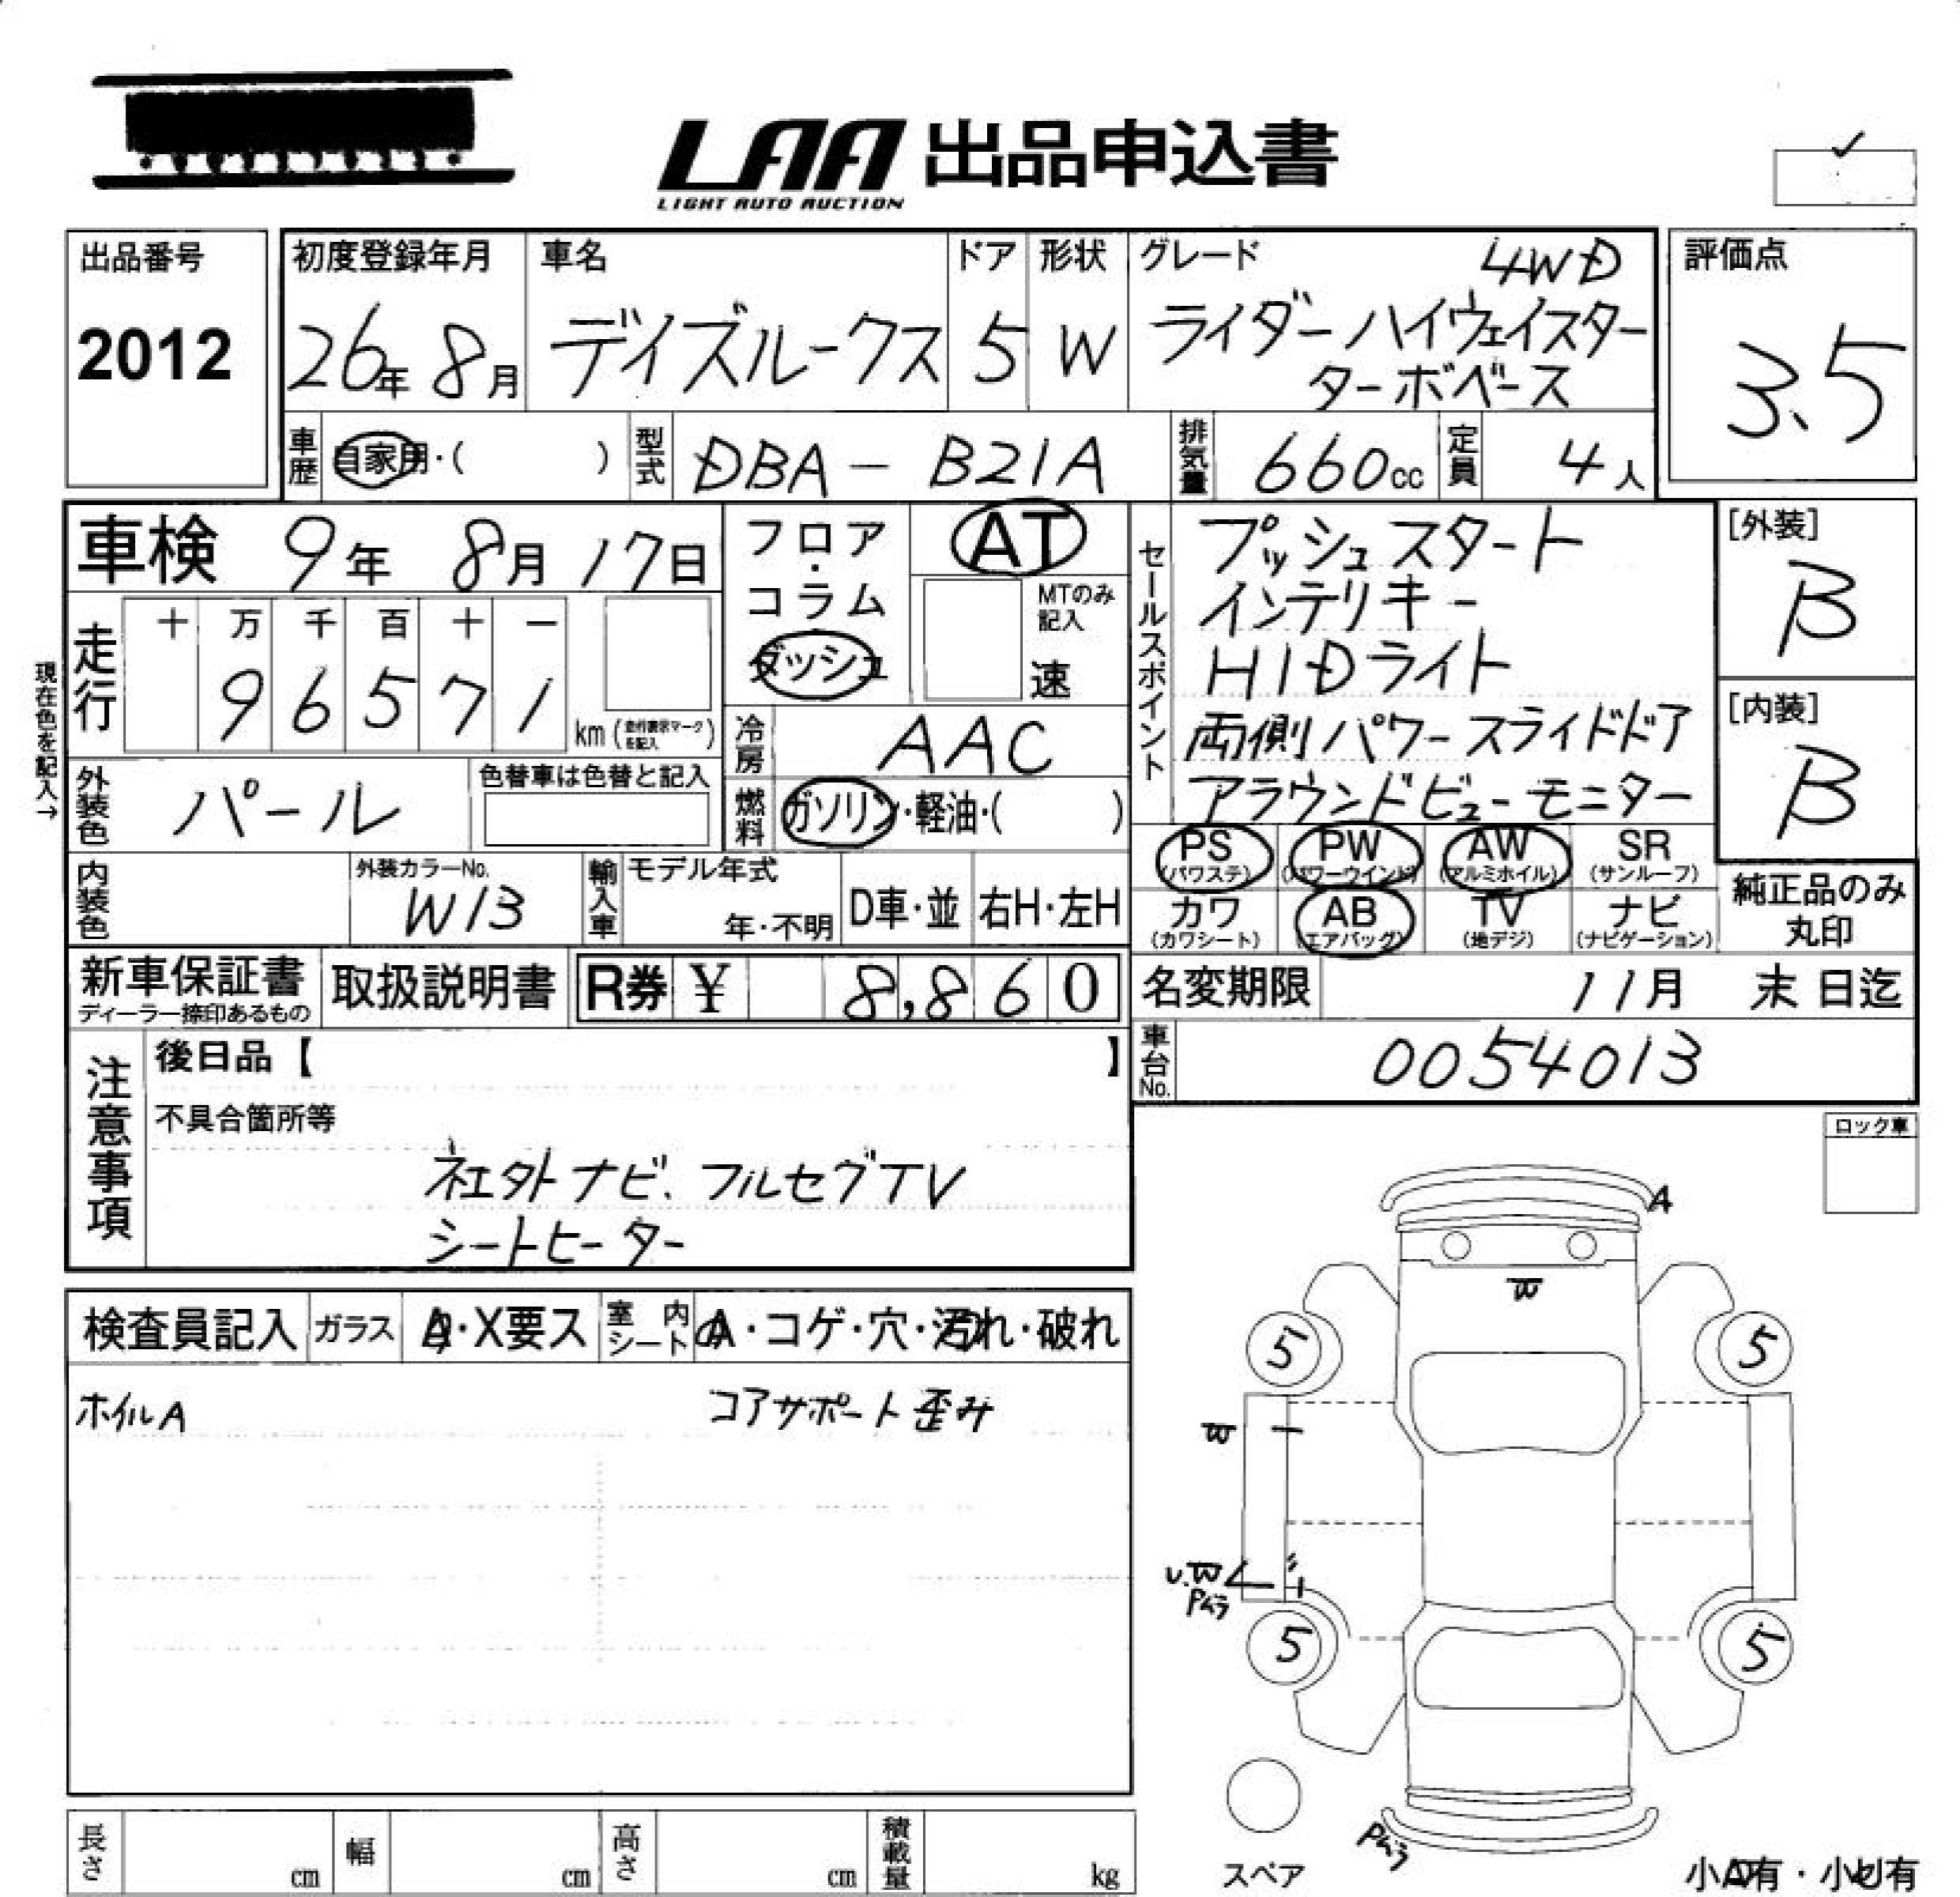 LAA 出品申込書
LIGHT AUTO AUCTION
出品番号
2012
初度登録年月
26年 8月
車名
デイズルークス
ドア
5
形状
W
グレード
4WD
ライダーハイウェイスター
ターボベース
評価点
3.5
車歴
自家用・( )
型式
DBA-B21A
排気量
660cc
定員
4人
車検 9年 8月 17日
走行
十 万 千 百 十 一
9 6 5 7 1
km (走行表示マークを記入)
現在色を記入→
外装色
パール
色替車は色替と記入
内装色
外装カラーNo.
W13
フロア・コラム
ダッシュ
AT
MTのみ記入
速
冷房
AAC
燃料
ガソリン・軽油・( )
輸入車
モデル年式
年・不明
D車・並
右H・左H
セールスポイント
プッシュスタート
インテリキー
HIDライト
両側パワースライドドア
アラウンドビューモニター
[外装]
B
[内装]
B
PS
(パワステ)
PW
(パワーウインド)
AW
(アルミホイル)
SR
(サンルーフ)
カワ
(カワシート)
AB
(エアバッグ)
TV
(地デジ)
ナビ
(ナビゲーション)
純正品のみ
丸印
新車保証書
ディーラー捺印あるもの
取扱説明書
R券 ¥ 8,860
名変期限 11月 末日迄
車台No.
0054013
注意事項
後日品【 】
不具合箇所等
社外ナビ、フルセグTV
シートヒーター
ロック車
検査員記入
ガラス
A・X要ス
室内シート
A・コゲ・穴・汚れ・破れ
ホイルA
コアサポート歪み
A
5
5
5
5
Pムラ
Pムラ
スペア
小A有・小U有
長さ
cm
幅
cm
高さ
cm
積載量
kg